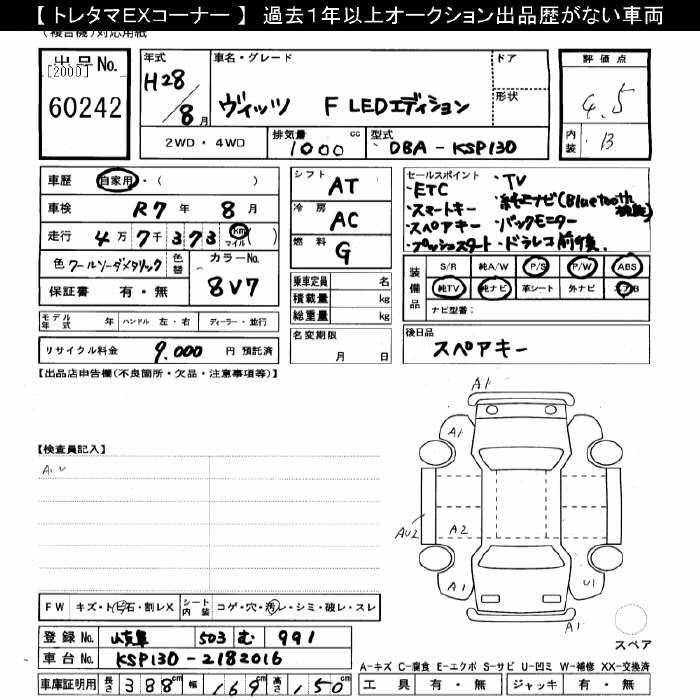 【 トレタマEXコーナー 】 過去１年以上オークション出品歴がない車両
(複合機)対応用紙
出品No.
[2000]
60242
年式
H28/8月
車名・グレード
ヴィッツ F LEDエディション
ドア
形状
評価点
4.5
内装
B
2WD・4WD
排気量
1000
cc
型式
DBA-KSP130
車歴
自家用・( )
車検
R7年8月
走行
4万7千373
km
マイル
( )
色
クールソーダメタリック
色替
カラーNo.
8V7
保証書 有・無
モデル年式 年
ハンドル 左・右
ディーラー・並行
リサイクル料金 9,000 円 預託済
シフト
AT
冷房
AC
燃料
G
乗車定員 名
積載量 kg
総重量 kg
名変期限
月 日
セールスポイント
・ETC
・スマートキー
・スペアキー
・プッシュスタート
・TV
・純正ナビ(Bluetooth
・バックモニター
・ドラレコ前後
装備品
S/R 純A/W P/S P/W ABS
純TV 純ナビ 革シート 外ナビ エアB
ナビ型番:
後日品
スペアキー
【出品店申告欄(不良箇所・欠品・注意事項等)】
【検査員記入】
A.U
A1
A1
AU2
A2
A1
U1
A1
スペア
FW
キズ・トビ石・割レX
シート内装
コゲ・穴・汚レ・シミ・破レ・スレ
登録No.
岐阜 503 む 991
車台No.
KSP130-2182016
車庫証明用
長さ 388cm
幅 169cm
高さ 150cm
A-キズ C-腐食 E-エクボ S-サビ U-凹ミ W-補修 XX-交換済
工具 有・無
ジャッキ 有・無